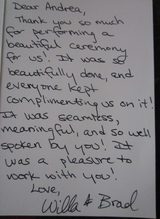 Dear Andrea,
Thank you so much
for performing a
beautiful ceremony
for us! It was so
beautifully done, and
everyone kept
complimenting us on it!
It was seamless,
meaningful, and so well
spoken by you! It
was a pleasure to
work with you!
Love,
Willa & Brad